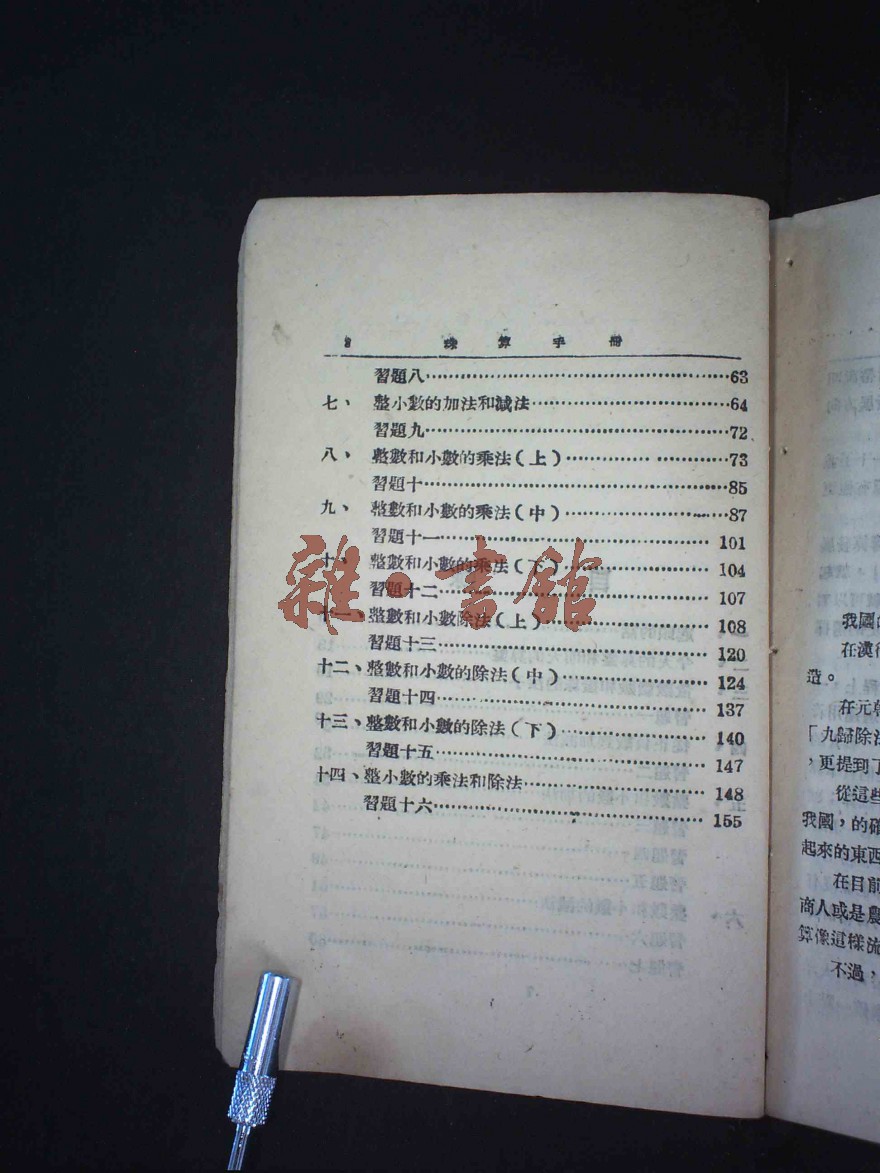 珠算手冊
習題八……63
七、 整小數的加法和減法……64
習題九……72
八、 整數和小數的乘法(上)……73
習題十……85
九、 整數和小數的乘法(中)……87
習題十一……101
十、 整數和小數的乘法(下)……104
習題十二……107
十一、整數和小數除法(上)……108
習題十三……120
十二、整數和小數的除法(中)……124
習題十四……137
十三、整數和小數的除法(下)……140
習題十五……147
十四、整小數的乘法和除法……148
習題十六……155
雜·書館
我國
在漢
造。
在元
「九歸除
,更提到了
從這些
我國,的確
起來的東西
在目前
商人或是農
算像這樣流
不過,